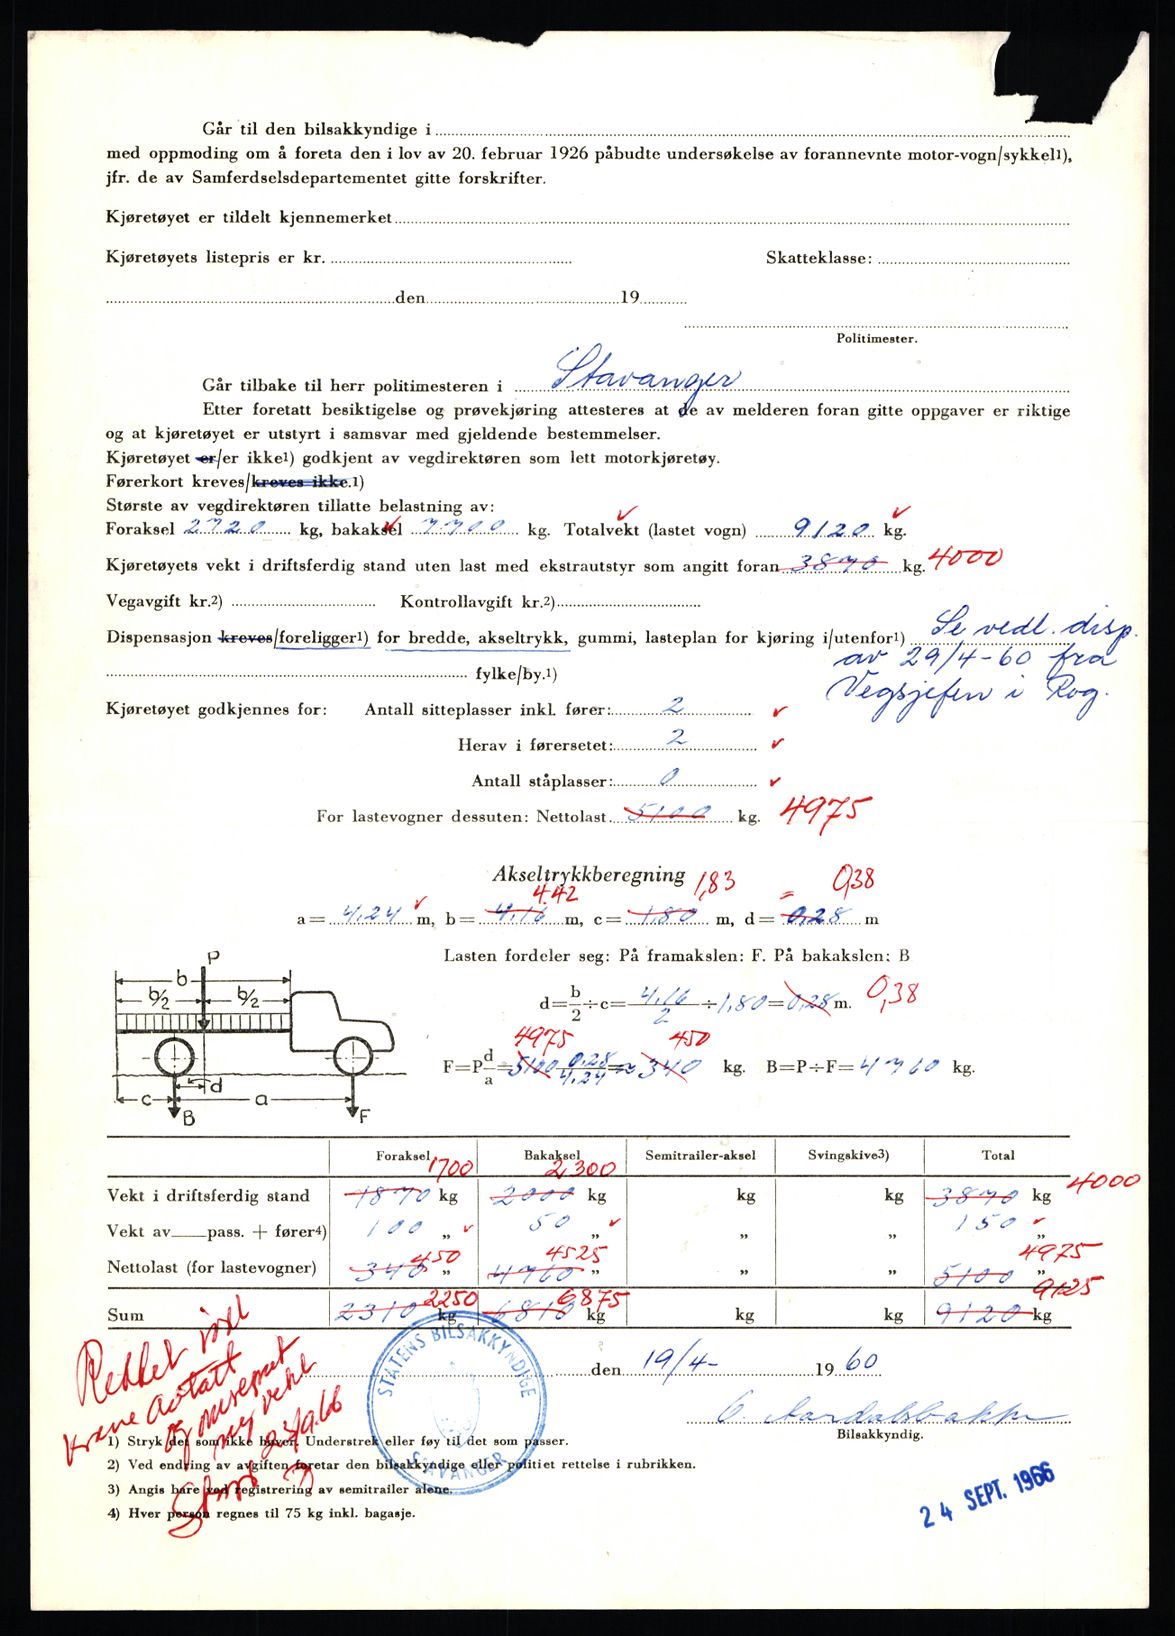 Går til den bilsakkyndige i
med oppmoding om å foreta den i lov av 20. februar 1926 påbudte undersøkelse av forannevnte motor-vogn/sykkel1),
jfr. de av Samferdselsdepartementet gitte forskrifter.
Kjøretøyet er tildelt kjennemerket
Kjøretøyets listepris er kr. Skatteklasse:
den 19
Politimester.
Går tilbake til herr politimesteren i Stavanger
Etter foretatt besiktigelse og prøvekjøring attesteres at de av melderen foran gitte oppgaver er riktige
og at kjøretøyet er utstyrt i samsvar med gjeldende bestemmelser.
Kjøretøyet er/er ikke1) godkjent av vegdirektøren som lett motorkjøretøy.
Førerkort kreves/kreves ikke.1)
Største av vegdirektøren tillatte belastning av:
Foraksel 2720 kg, bakaksel 7700 kg. Totalvekt (lastet vogn) 9120 kg.
Kjøretøyets vekt i driftsferdig stand uten last med ekstrautstyr som angitt foran 3870 kg. 4000
Vegavgift kr.2) Kontrollavgift kr.2)
Dispensasjon kreves/foreligger1) for bredde, akseltrykk, gummi, lasteplan for kjøring i/utenfor1) Se vedl. disp.
av 29/4-60 fra
fylke/by.1) Vegsjefen i Rog.
Kjøretøyet godkjennes for: Antall sitteplasser inkl. fører: 2
Herav i førersetet: 2
Antall ståplasser: 0
For lastevogner dessuten: Nettolast 5100 kg. 4975
Akseltrykkberegning 1,83 0,38
4.42 =
a = 4.24 m, b = 4.16 m, c = 1.80 m, d = 0,28 m
Lasten fordeler seg: På framakslen: F. På bakakslen: B
P
b
b/2 b/2
d=b/2÷c= 4,16/2 ÷1,80=0,28 m. 0,38
4975 450
F=P d/a=5100 0.28/4.24=≈340 kg. B=P÷F=4760 kg.
d
c a
B F
Foraksel Bakaksel Semitrailer-aksel Svingskive3) Total
1700 2,300 4000
Vekt i driftsferdig stand 1870 kg 2000 kg kg kg 3870 kg
Vekt av pass. + fører4) 100 „ 50 „ „ „ 150 „
450 4525 4975
Nettolast (for lastevogner) 340 „ 4760 „ „ „ 5100 „
2250 6875 9125
Sum 2310 kg 6810 kg kg kg 9120 kg
STATENS BILSAKKYNDIGE
STAVANGER
den 19/4- 1960
Bilsakkyndig.
Krane avtatt
og
ny vekt
23/9.66
1) Stryk det som ikke høver. Understrek eller føy til det som passer.
2) Ved endring av avgiften foretar den bilsakkyndige eller politiet rettelse i rubrikken.
3) Angis bare ved registrering av semitrailer alene.
4) Hver person regnes til 75 kg inkl. bagasje.
24 SEPT. 1966